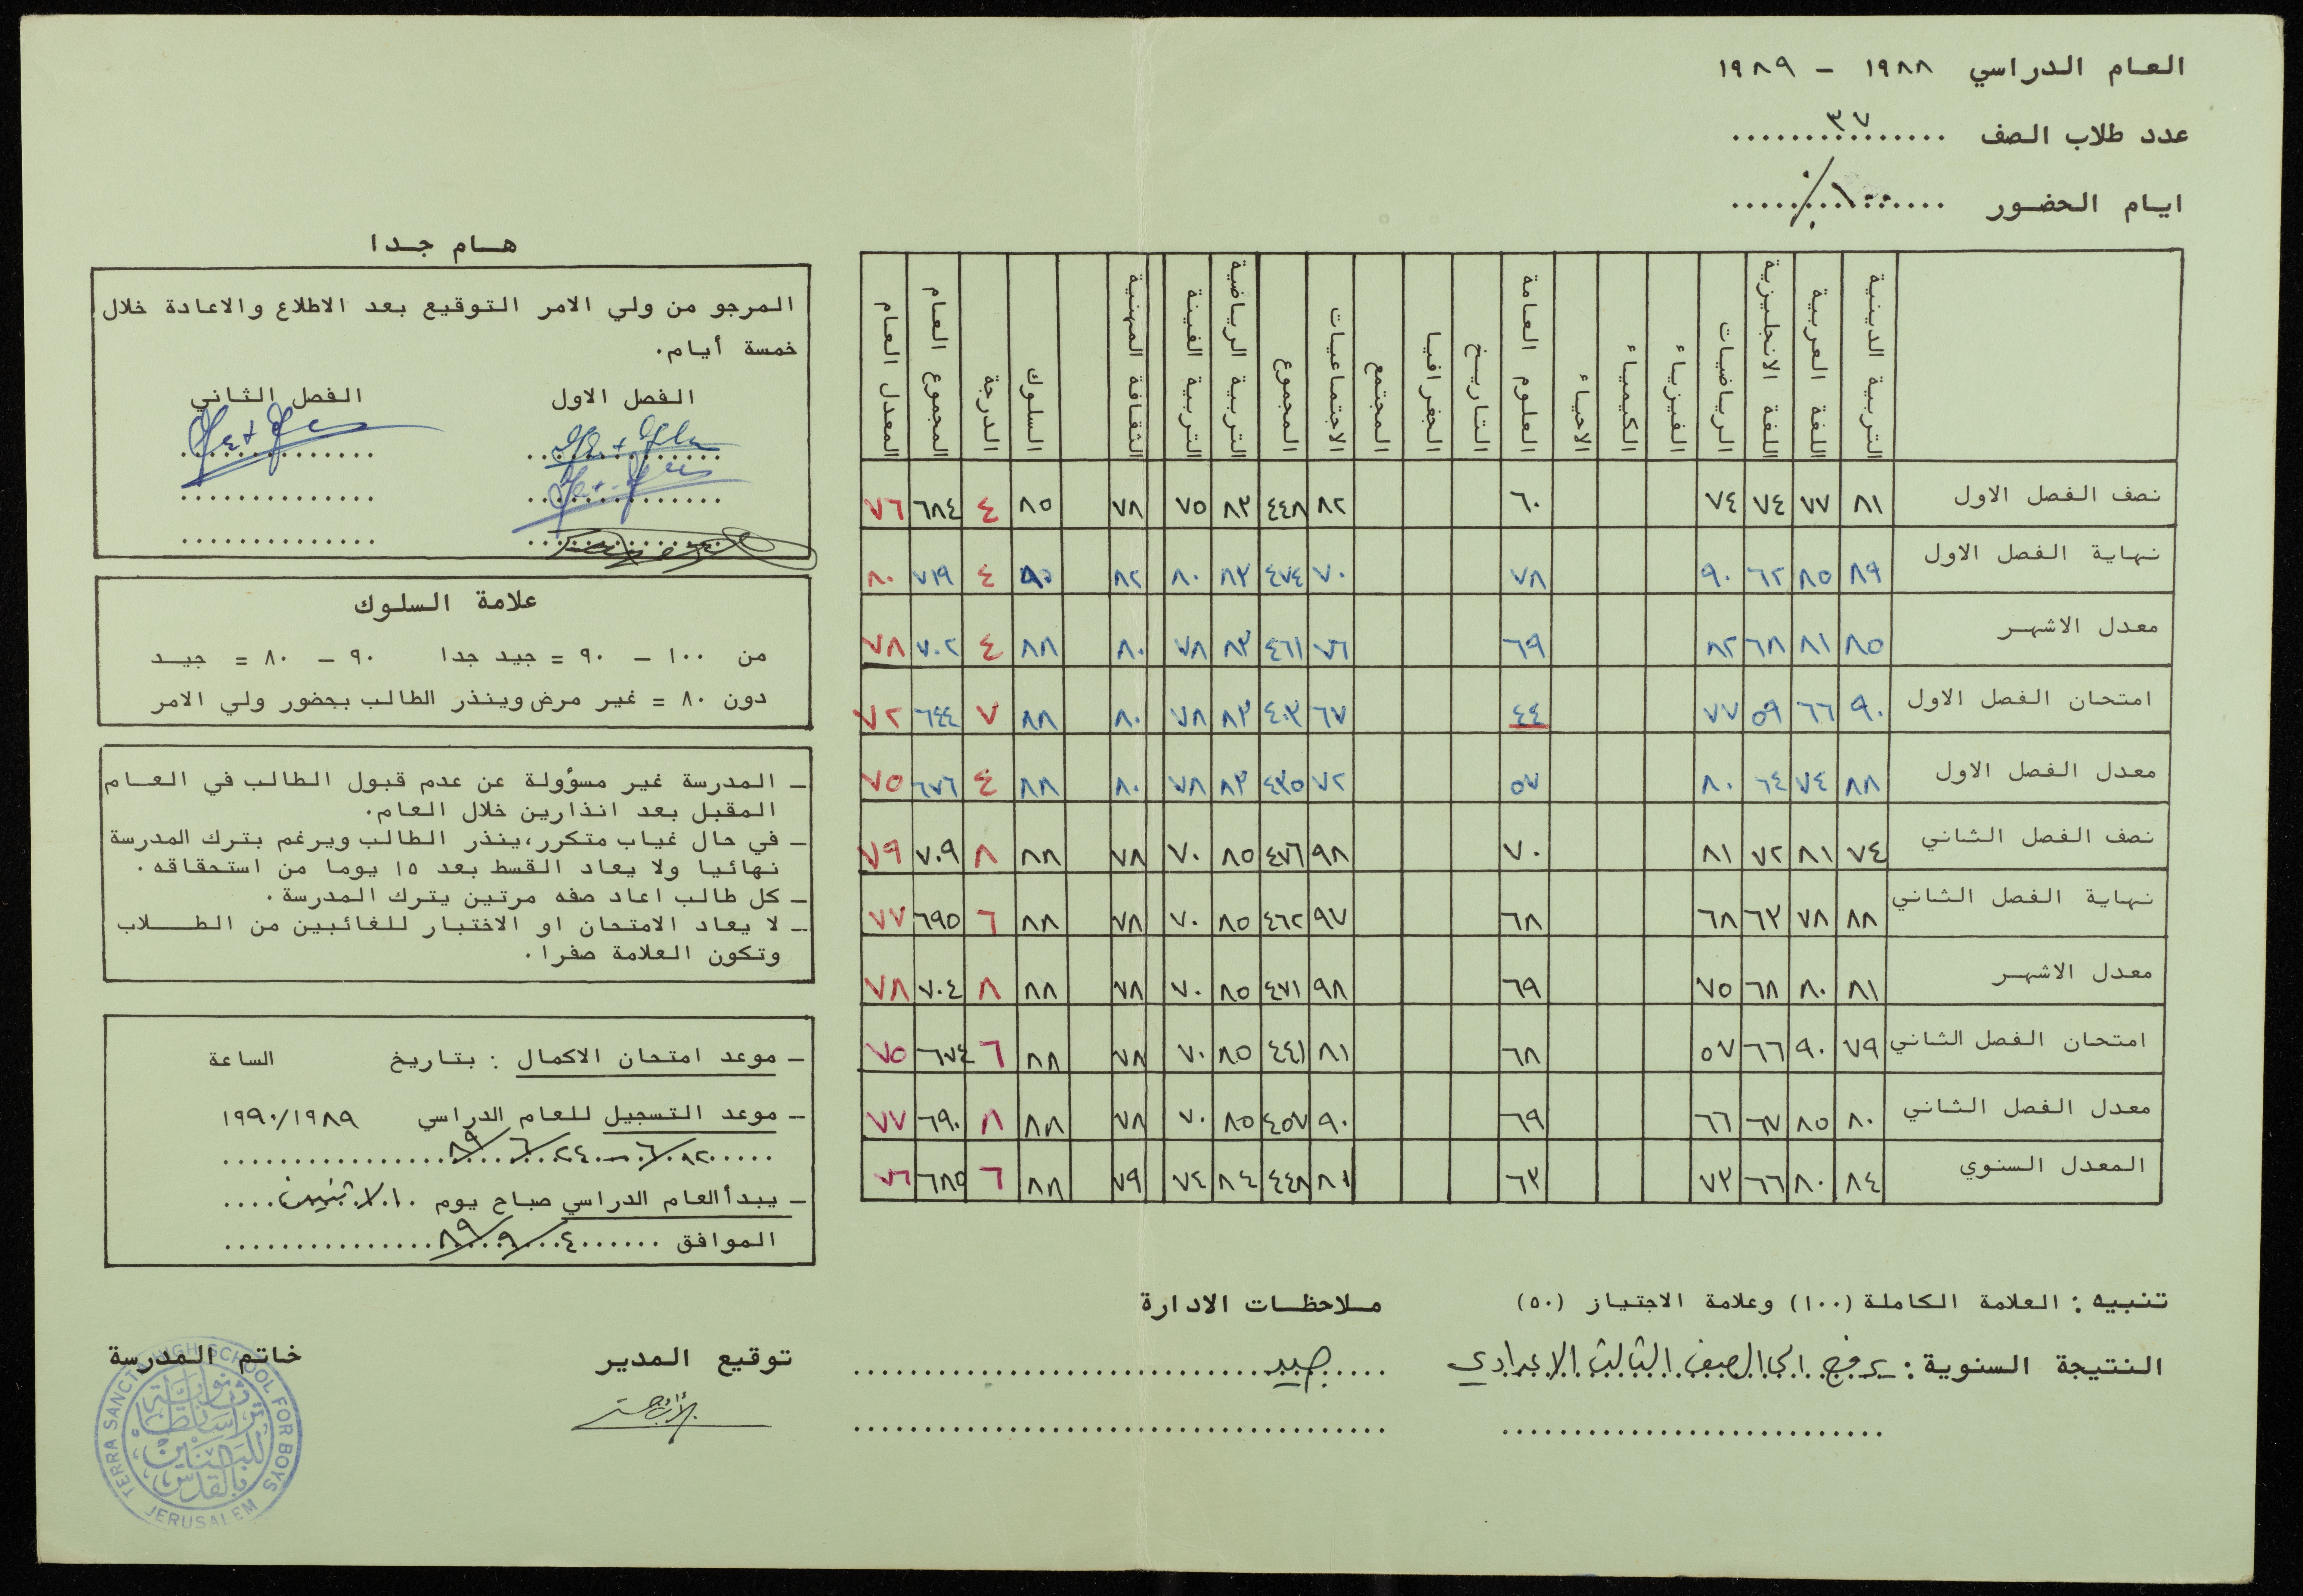 العام الدراسي ١٩٨٨ - ١٩٨٩
عدد طلاب الصف ٣٧
ايام الحضور ١٠٠٪
التربية الدينية | اللغة العربية | اللغة الانجليزية | الرياضيات | الفيزياء | الكيمياء | الاحياء | العلوم العامة | التاريخ | الجغرافيا | المجتمع | الاجتماعيات | المجموع | التربية الرياضية | التربية الفينة | الثقافة المهنية | السلوك | الدرجة | المجموع العام | المعدل العام
نصف الفصل الاول ٨١ ٧٧ ٧٤ ٧٤ ٦٠ ٨٢ ٤٤٨ ٨٣ ٧٥ ٧٨ ٨٥ ٤ ٦٨٤ ٧٦
نهاية الفصل الاول ٨٩ ٨٥ ٦٢ ٩٠ ٧٨ ٧٠ ٤٧٤ ٨٣ ٨٠ ٨٢ ٩٠ ٤ ٧١٩ ٨٠
معدل الاشهر ٨٥ ٨١ ٦٨ ٨٢ ٦٩ ٧٦ ٤٦١ ٨٣ ٧٨ ٨٠ ٨٨ ٤ ٧٠٢ ٧٨
امتحان الفصل الاول ٩٠ ٦٦ ٥٩ ٧٧ ٤٤ ٦٧ ٤٠٣ ٨٣ ٧٨ ٨٠ ٨٨ ٧ ٦٤٤ ٧٢
معدل الفصل الاول ٨٨ ٧٤ ٦٤ ٨٠ ٥٧ ٧٢ ٤٣٥ ٨٣ ٧٨ ٨٠ ٨٨ ٤ ٦٧٦ ٧٥
نصف الفصل الثاني ٧٤ ٨١ ٧٢ ٨١ ٧٠ ٩٨ ٤٧٦ ٨٥ ٧٠ ٧٨ ٨٨ ٨ ٧٠٩ ٧٩
نهاية الفصل الثاني ٨٨ ٧٨ ٦٣ ٦٨ ٦٨ ٩٧ ٤٦٢ ٨٥ ٧٠ ٧٨ ٨٨ ٦ ٦٩٥ ٧٧
معدل الاشهر ٨١ ٨٠ ٦٨ ٧٥ ٦٩ ٩٨ ٤٧١ ٨٥ ٧٠ ٧٨ ٨٨ ٨ ٧٠٤ ٧٨
امتحان الفصل الثاني ٧٩ ٩٠ ٦٦ ٥٧ ٦٨ ٨١ ٤٤١ ٨٥ ٧٠ ٧٨ ٨٨ ٦ ٦٧٤ ٧٥
معدل الفصل الثاني ٨٠ ٨٥ ٦٧ ٦٦ ٦٩ ٩٠ ٤٥٧ ٨٥ ٧٠ ٧٨ ٨٨ ٨ ٦٩٠ ٧٧
المعدل السنوي ٨٤ ٨٠ ٦٦ ٧٣ ٦٣ ٨١ ٤٤٨ ٨٤ ٧٤ ٧٩ ٨٨ ٦ ٦٨٥ ٧٦
تنبيه : العلامة الكاملة (١٠٠) وعلامة الاجتياز (٥٠)
النتيجة السنوية : يرفع الى الصف الثالث الاعدادي
ملاحظات الادارة
جيد
توقيع المدير
خاتم المدرسة
TERRA SANCTA HIGH SCHOOL FOR BOYS
JERUSALEM
هام جدا
المرجو من ولي الامر التوقيع بعد الاطلاع والاعادة خلال
خمسة أيام.
الفصل الاول الفصل الثاني
علامة السلوك
من ١٠٠ - ٩٠ = جيد جدا ٩٠ - ٨٠ = جيد
دون ٨٠ = غير مرض وينذر الطالب بحضور ولي الامر
- المدرسة غير مسؤولة عن عدم قبول الطالب في العام
المقبل بعد انذارين خلال العام.
- في حال غياب متكرر، ينذر الطالب ويرغم بترك المدرسة
نهائيا ولا يعاد القسط بعد ١٥ يوما من استحقاقه .
- كل طالب اعاد صفه مرتين يترك المدرسة .
- لا يعاد الامتحان او الاختبار للغائبين من الطلاب
وتكون العلامة صفرا .
- موعد امتحان الاكمال : بتاريخ الساعة
- موعد التسجيل للعام الدراسي ١٩٩٠/١٩٨٩
٢٤/٦/٨٩
- يبدأ العام الدراسي صباح يوم الاثنين
الموافق ٤/٩/٨٩